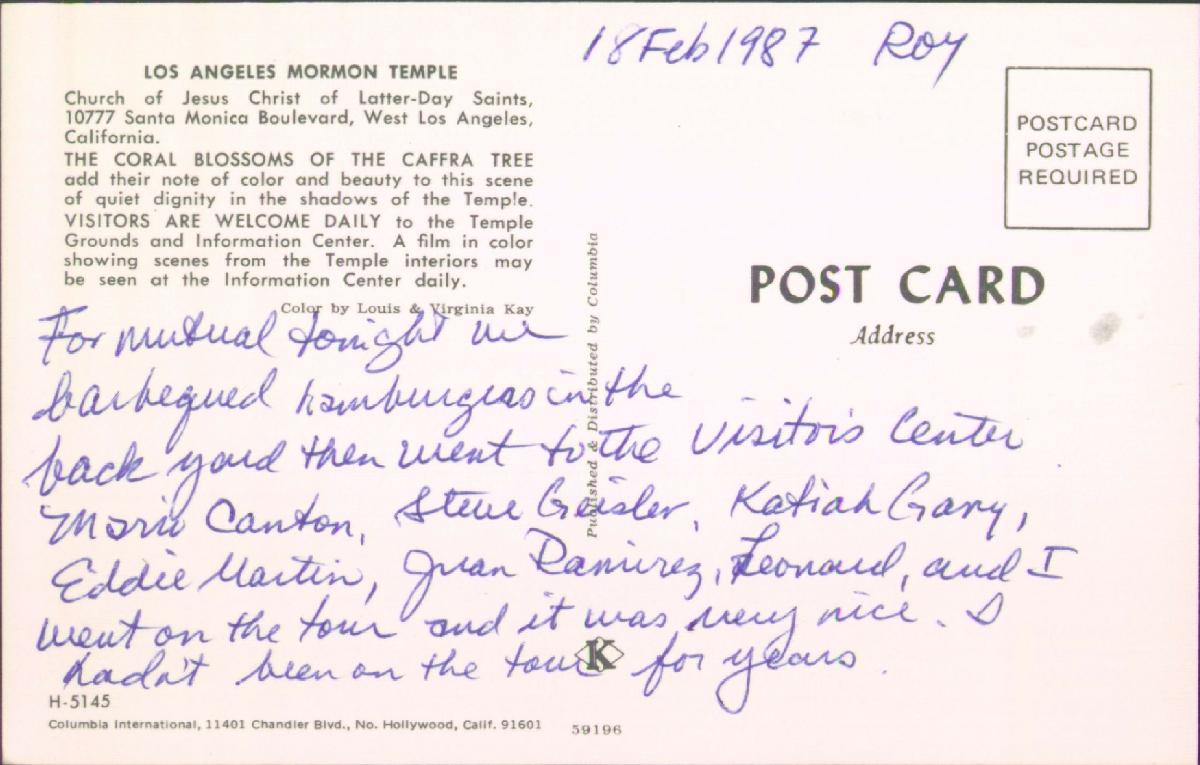 18 Feb 1987 Roy
LOS ANGELES MORMON TEMPLE
Church of Jesus Christ of Latter-Day Saints,
10777 Santa Monica Boulevard, West Los Angeles,
California.
THE CORAL BLOSSOMS OF THE CAFFRA TREE
add their note of color and beauty to this scene
of quiet dignity in the shadows of the Temple.
VISITORS ARE WELCOME DAILY to the Temple
Grounds and Information Center. A film in color
showing scenes from the Temple interiors may
be seen at the Information Center daily.
Color by Louis & Virginia Kay
POSTCARD
POSTAGE
REQUIRED
POST CARD
Address
Published & Distributed by Columbia
For mutual tonight we
barbequed hamburgers in the
back yard then went to the Visitors Center
Canton, Steve Geisler, Katiah Gary,
Eddie Martin, Juan Ramirez, Leonard, and I
went on the tour and it was very nice. I
hadn't been on the tour for years.
K
H-5145
Columbia International, 11401 Chandler Blvd., No. Hollywood, Calif. 91601
59196